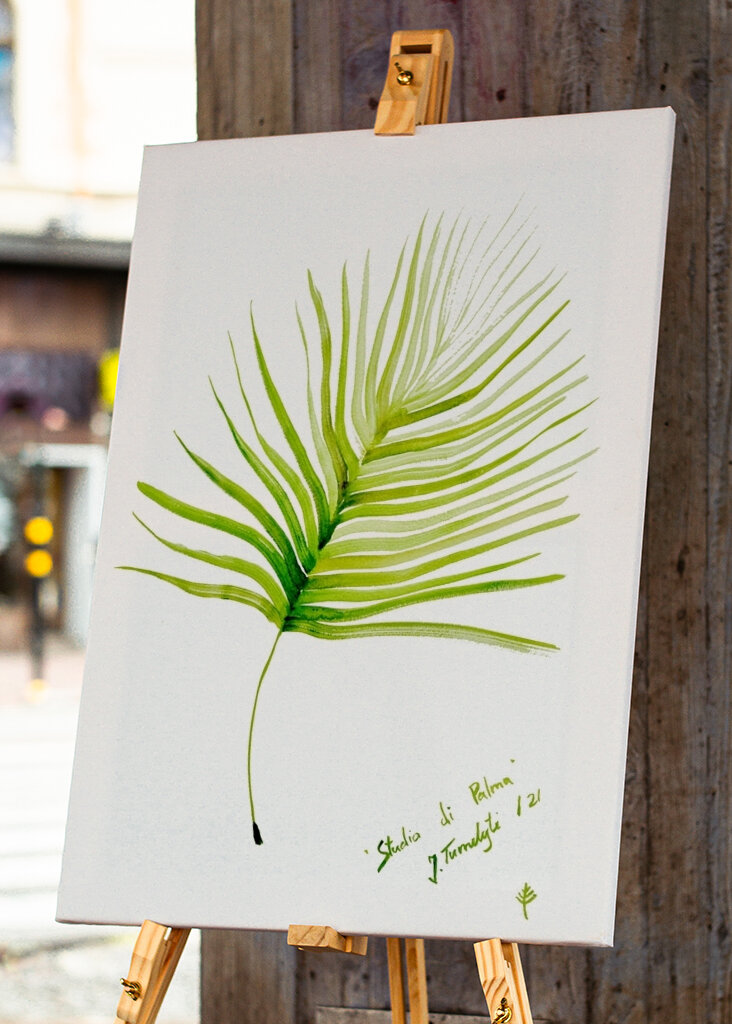 "Studio di Palma"
J. Tumelytė /21